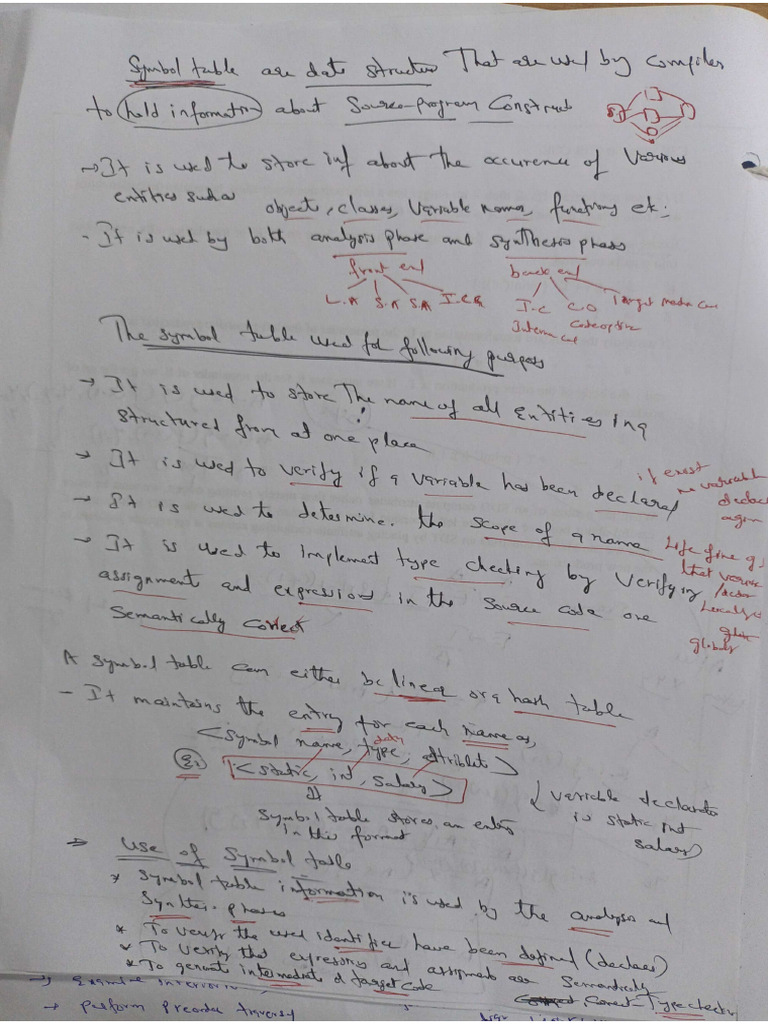 Symbol table are data structure That are used by Compiler
to hold information about Source-program Construct
→ It is used to store inf about the occurence of Various
entities such as object, classes, Variable names, functions etc;
- It is used by both analysis phase and synthesis phases
front end back end
L.A S.A S.A I.C.G I.C C.O Target machin Code
Code optim
The symbol table used for following purposes
→ It is used to store The name of all entities in a
structured from at one place
→ It is used to verify if a variable has been declared
if exist no variable declare again
→ It is used to determine. the scope of a name
Life time of that
→ It is used to implement type checking by verifying
assignment and expression in the source code are
Locally
globally
Semantically Correct
A symbol table can either be linear or a hash table
- It maintains the entry for each name as,
<symbol name, type, attribute>
data
Eg <static, int, salary>
(variable declaration
is static int
salary)
Symbol table stores an entry
In this format
⇒ Use of Symbol table
* Symbol table information is used by the analysis and
Synthesis phases
* To verify the used identifier have been defined (declared)
* To verify that expressions and assignments are Semantically
Correct - Type checking
* To generate intermediate & target code
→ perform Preorder